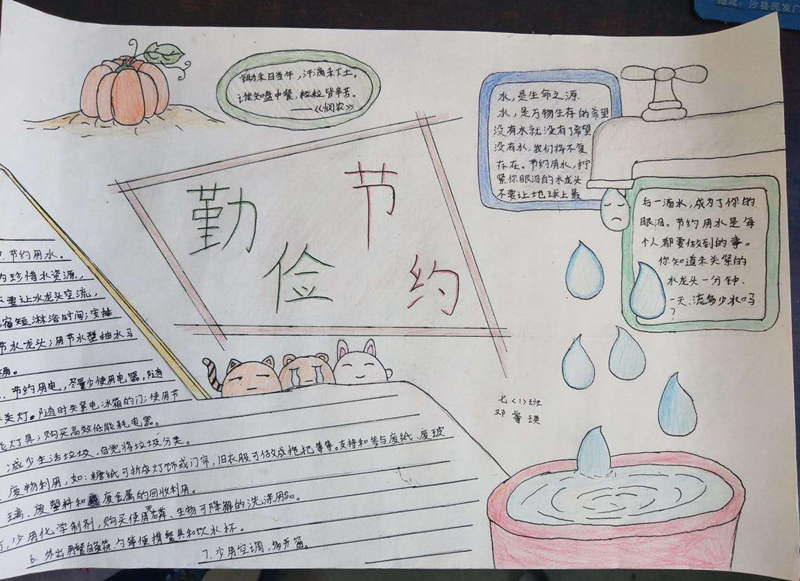 地址：沙县民发广
锄禾日当午，汗滴禾下土。
谁知盘中餐，粒粒皆辛苦。
——《悯农》
勤俭节约
水，是生命之源
水，是万物生存的希望
没有水就没有了希望
没有水，我们将不复
存在。节约用水，拧
紧你眼泪的水龙头
不要让地球上最
后一滴水，成为了你的
眼泪。节约用水是每
个人都要做到的事。
你知道未关紧的
水龙头一分钟、
一天、流多少水吗
？
七〈1〉班
邓
节约用水。
珍惜水资源，
不要让水龙头空流，
缩短淋浴时间；安装
节水龙头；用节水型抽水马
桶。
节约用电，尽量少使用电器，随
关灯。随时关紧电冰箱的门；使用节
能灯具；购买高效低能耗电器。
减少生活垃圾，自觉将垃圾分类。
废物利用，如：糖纸可折成灯饰或门帘，旧衣服可做成拖把等等。支持和参与废纸、废玻
璃、废塑料和废金属的回收利用。
少用化学制剂，购买使用无磷、生物可降解的洗涤用品。
6、外出用餐自备筷、勺等便携餐具和饮水杯。
7、少用空调，多开窗。